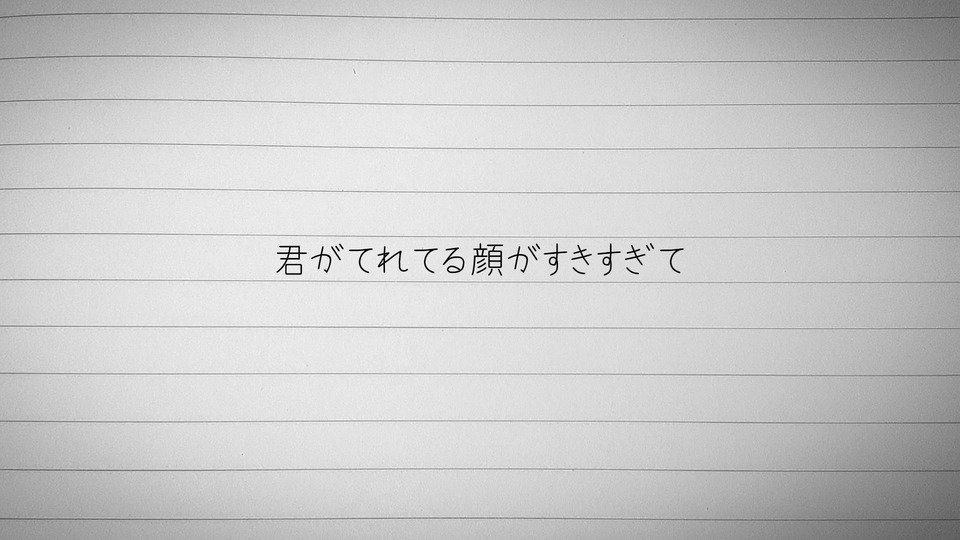 君がてれてる顔がすきすぎて